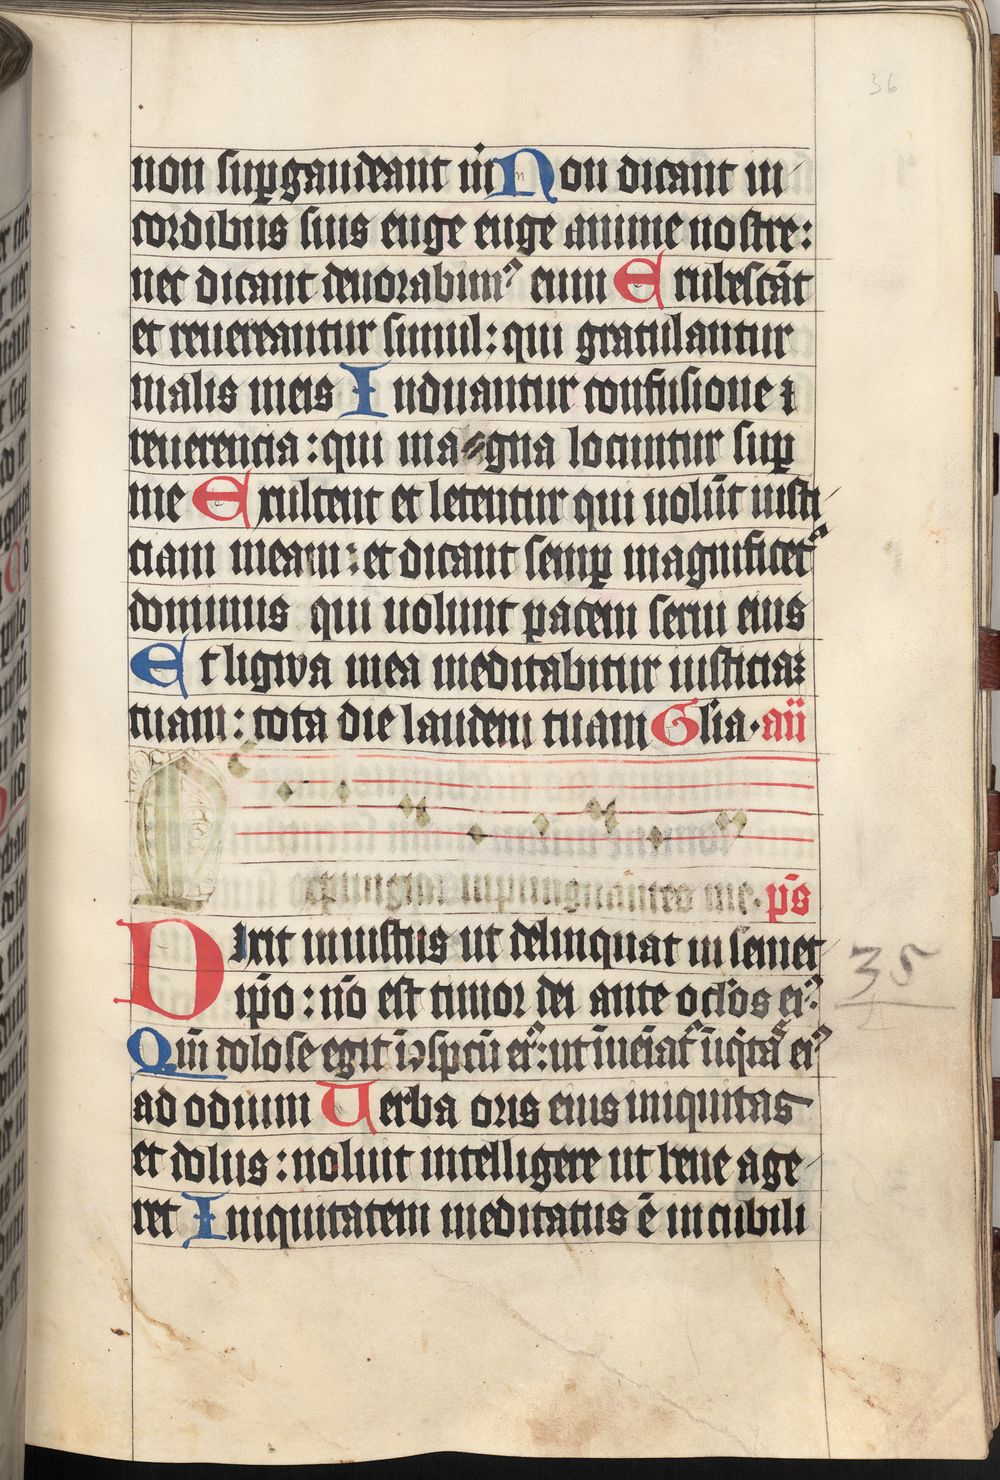 36
non sup̱gaudeant m̄ Non dicant in
cordibus suis euge euge anime nostre:
nec dicant deuorabim⁹ eum Erubescāt
et reuereantur simul: qui gratulantur
malis meis Induantur confusione ⁊
reuerencia: qui magna locuntur sup̱
me Exultent et letentur qui uolūt iusti
ciam meam: et dicant semp̱ magnificet᷑
dominus qui uolunt pacem serui eius
Et ligwa mea meditabitur iusticiaz
tuam: tota die laudem tuam Gl̄ia. an̄
Expugna inpugnantes me. ps̄
Dixit iniustus ut delinquat in semet
ip̄o: nō est timor dei ante oc̄los ei⁹
Qm̄ dolose egit ī ꝯsp̄ctū ei⁹: ut īueīat᷑ īiq̄tas̄ ei⁹
35
ad odium Uerba oris eius iniquitas
et dolus: noluit intelligere ut bene age
ret Iniquitatem meditatus ē in cubili